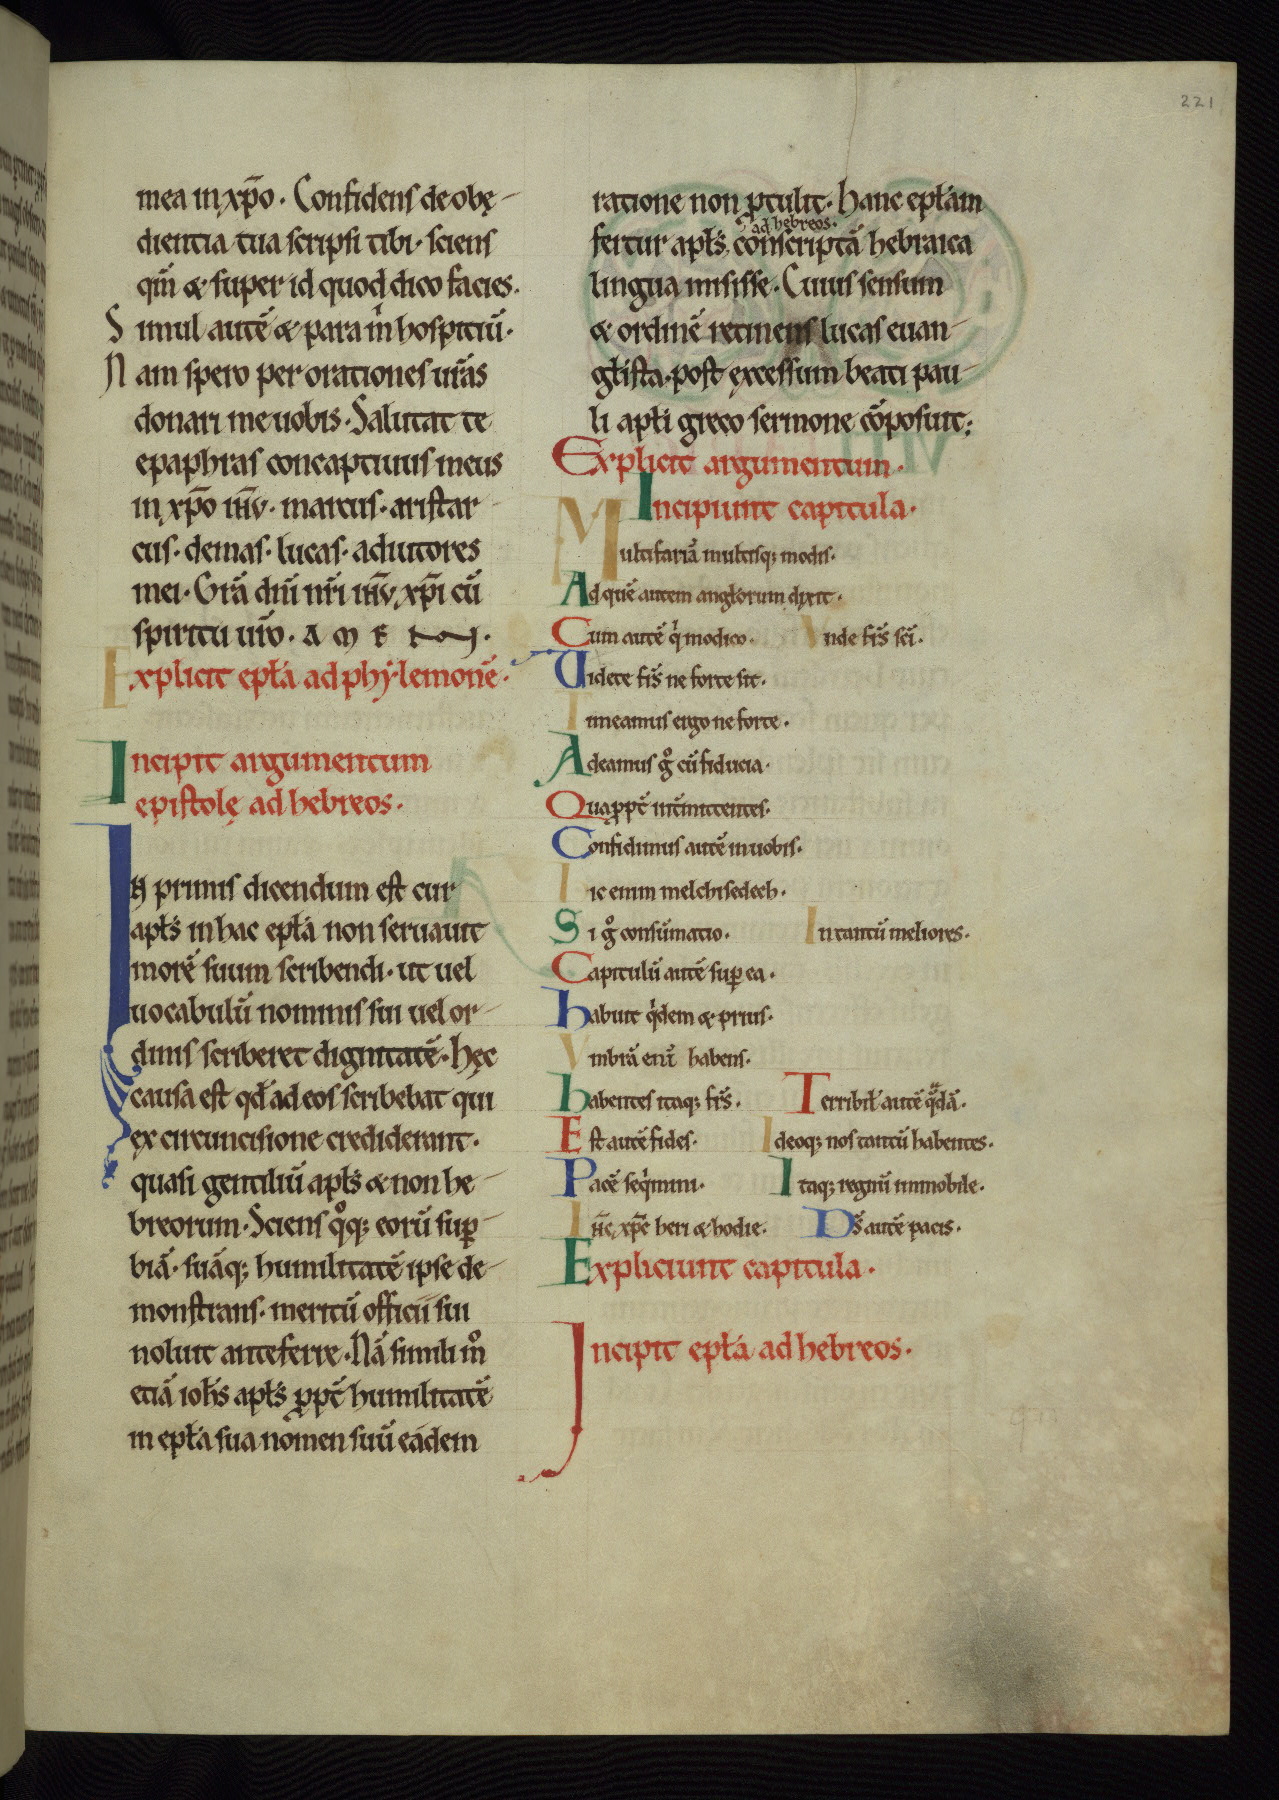 221
mea in xp̄o. Confidens de obę-
dientia tua scripsi tibi. sciens
qm̄ & super id quod dico facies.
Simul autē & para m̄ hospitiū.
Nam spero per orationes ur̄as
donari me uobis. Salutat te
epaphras concaptiuus meus
in xp̄o ih̄v. marcus. aristar-
cus. demas. lucas. adiutores
mei. Gr̄a dn̄i nr̄i ih̄v xp̄i cū
spiritu ur̄o. AMEN.
Explicit epƚa ad phylemonē.
Incipit argumentum
epistolę ad hebreos.
IN primis dicendum est cur
apƚs in hac epƚa non seruauit
morē suum scribendi. ut uel
uocabulū nominis sui uel or-
dinis scriberet dignitatē. hęc
causa est qđ ad eos scribebat qui
ex circuncisione crediderant.
quasi gentiliū apƚs & non he-
breorum. Sciens qͦq; eorū sup̲-
biā. suāq; humilitatē ipse de-
monstrans. meritū officii sui
noluit anteferre. Nā simili mͦ
etiā ioh̄s apƚs ꝓpt̄ humilitatē
in epƚa sua nomen suū eadem
ratione non ꝓtulit. hanc epƚam
ad hebreos.
fertur apƚs conscriptā hebraica
lingua misisse. Cuius sensum
& ordinē retinens lucas euan-
gƚista. post excessum beati pau-
li apƚi greco sermone cōposuit;
Explicit argumentum.
Incipiunt capitula.
Multifariā multisq; modis.
Ad quē autem angƚorum dixit.
Cum autē qͥ modico. Vnde fr̄s sc̄i.
Uidete fr̄s ne forte sit.
Timeamus ergo ne forte.
Adeamus gͦ cū fiducia.
Quaꝓpt̄ int̄mittentes.
Confidimus autē in uobis.
Iic enim melchisedech.
Si gͦ consūmatio. In tantū meliores.
Capitulū autē sup̲ ea.
habuit qͥdem & prius.
Vmbrā enī habens.
habentes itaq; fr̄s. Terribiƚ autē qͣdā.
Est autē fides. Ideoq; nos tantū habentes.
Pacē seqͥmini. Itaq; regnū immobile.
Ih̄c xp̄c heri & hodie. Ds̄ autē pacis.
Expliciunt capitula.
Incipit epƚa ad hebreos.